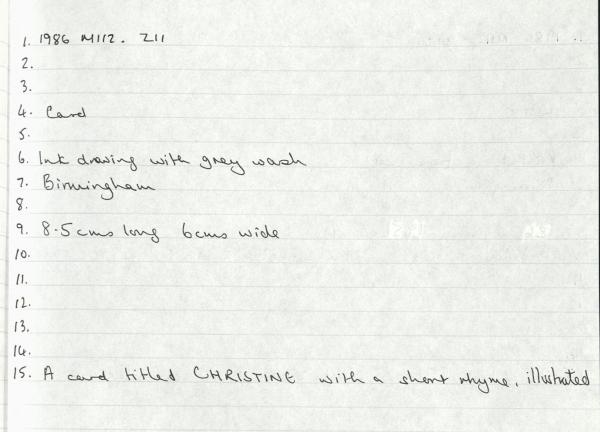 1. 1986 M112. Z11
2.
3.
4. Card
5.
6. Ink drawing with grey wash
7. Birmingham
8.
9. 8.5cms long 6cms wide
10.
11.
12.
13.
14.
15. A card titled CHRISTINE with a short rhyme, illustrated